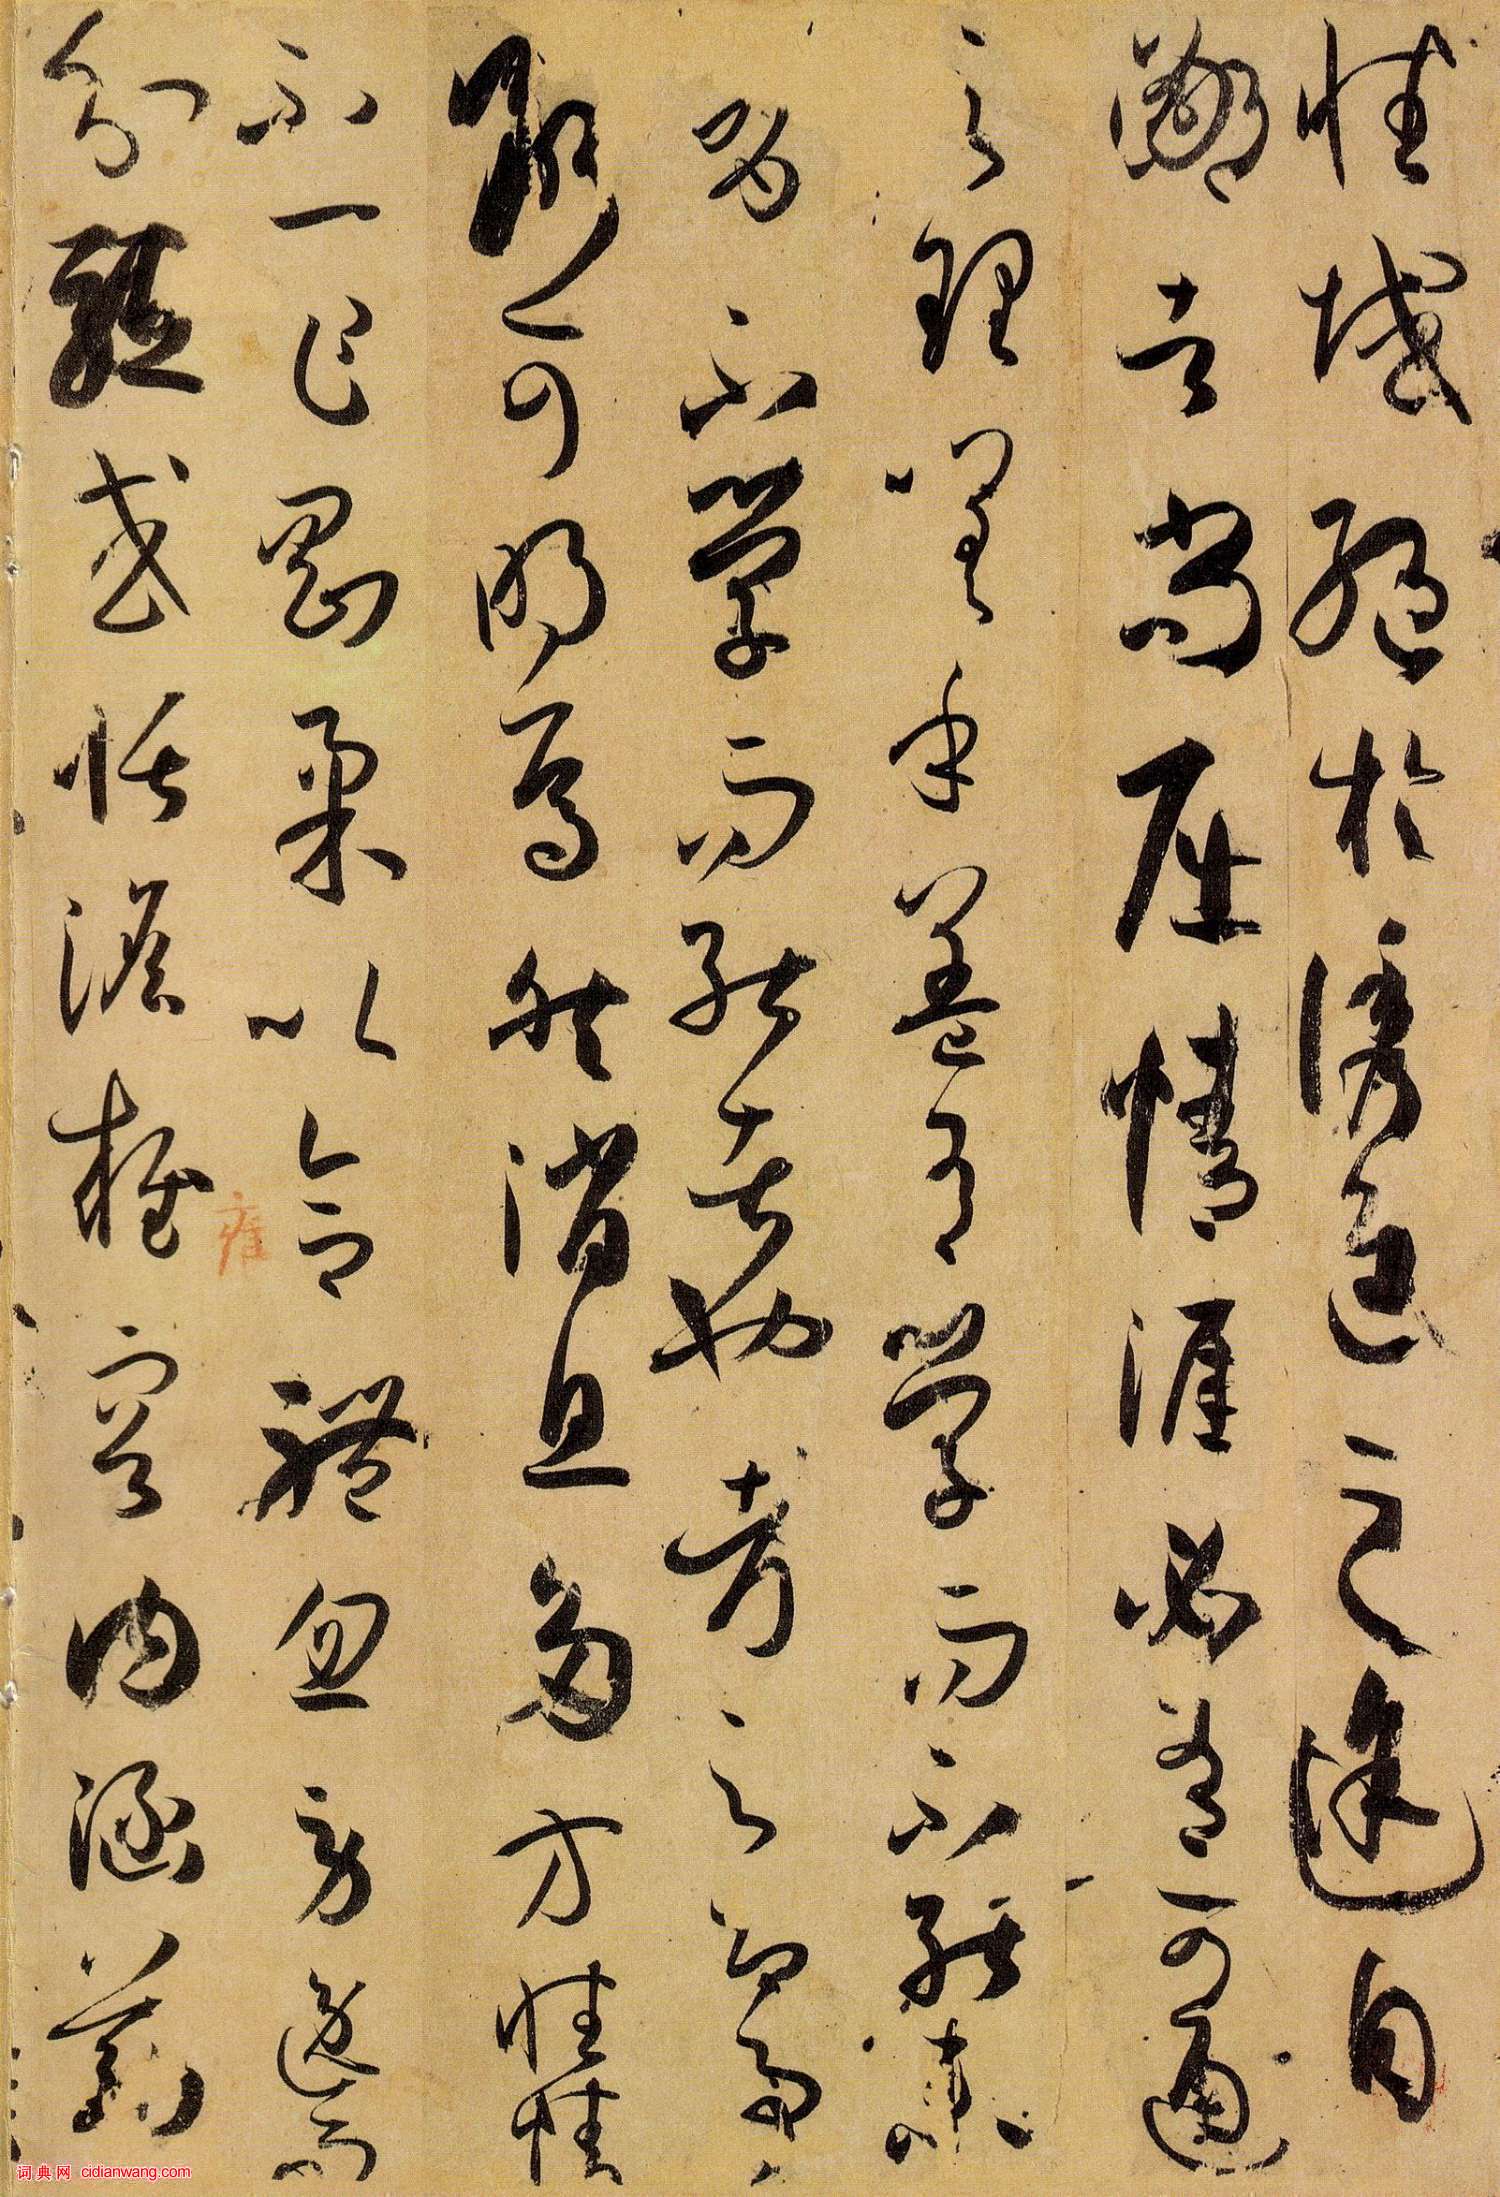 性域絕於誘進之途自
鄙者尚崖情涯必有可通
之理嗟乎蓋有學而不能未
有不學而能者也考之即事
斷可明焉然消息多方性情
不一乍剛柔以合體忽勞逸而
分驅或恬澹雍容內涵筋
雍
词典网 cidianwang.com